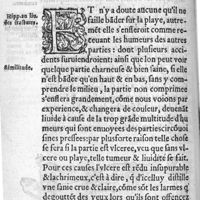 ET n'y a doute aucune qu'il ne
faille bāder sur la playe, autre-
Hipp. au liu. mēt elle s'enflerōit comme re-
des fractures. tenant les humeurs des autres
parties: dont plusieurs acci-
dents suruiendroient: ainsi que lon peut voir
Similitude. quelque partie charneuse & bien saine, si elle
n'est bādee qu'en haut & en bas, sans y com-
prendre le milieu, la partie non comprimee
s'enflera grandement, cōme nous voions par
experience, & changera de couleur, deuenāt
liuide à cause de la trop grāde multitude d'hu
meurs qui sont enuoyees des parties circōuoi
sines pressees: par plusforte raison telle chose
se fera si la partie est vlceree, veu que sans vl-
cere ou playe, telle tumeur & liuidité se fait.
Pour ces causes l'vlcere est rēdu insuperable
& lachrimeux, c'est à dire, qu'icelluy distille
vne sanie crue & claire, cōme sōt les larmes q̄
degouttent des yeux lors qu'ils sont offensez